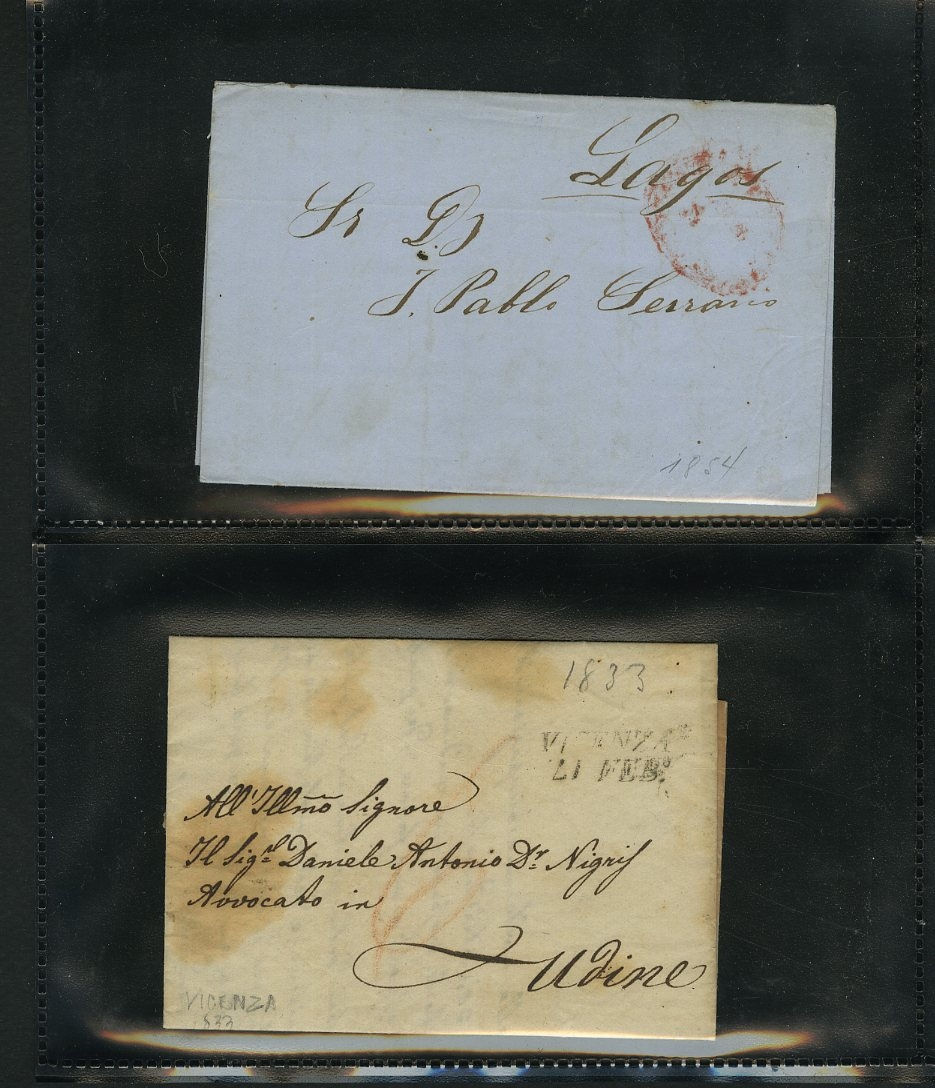 Lagos
Sr D.
J. Pablo Serrano
1854
1833
VICENZA
21 FEB.º
All'Illmo Signore
Il Sigr. Daniele Antonio Dr. Nigris
Avvocato in
Udine
VICENZA
1833